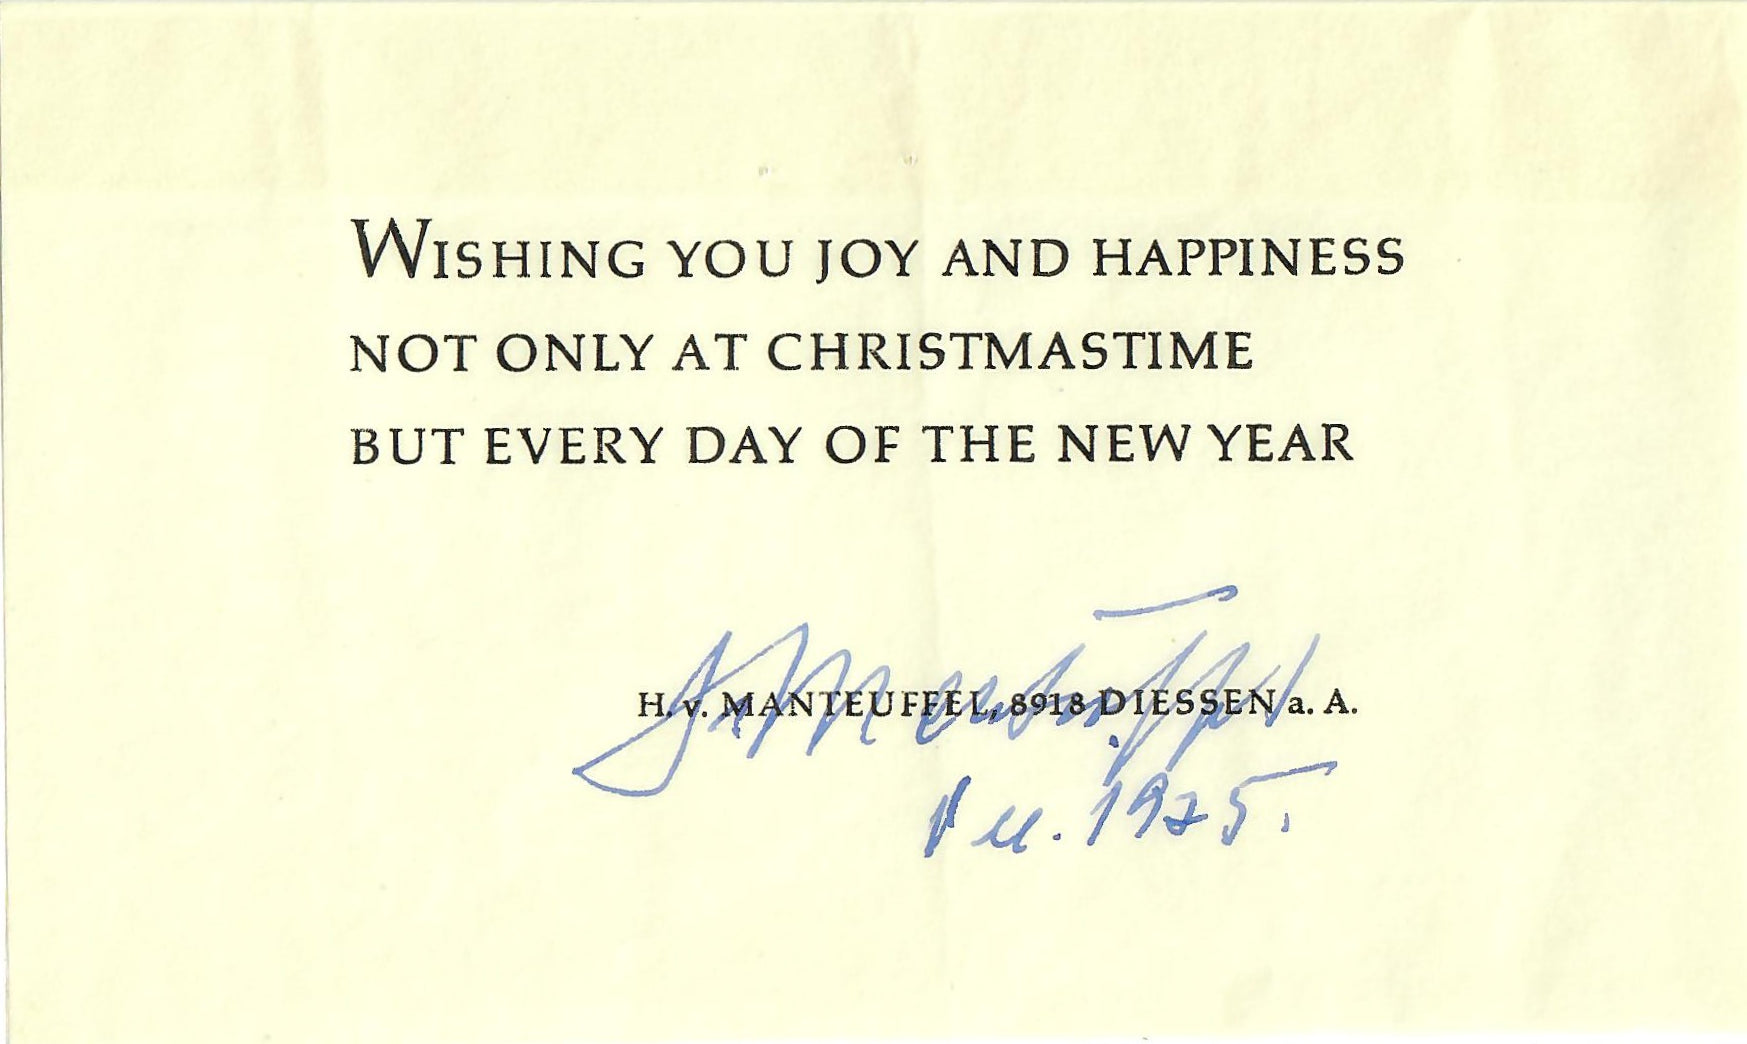 WISHING YOU JOY AND HAPPINESS
NOT ONLY AT CHRISTMASTIME
BUT EVERY DAY OF THE NEW YEAR
H. v. MANTEUFFEL, 8918 DIESSEN a. A.
Manteuffel
Dec. 1975.